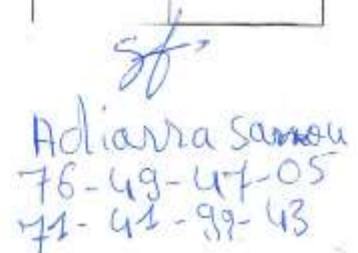 Adiarra Sanou
76-49-47-05
71-41-99-43